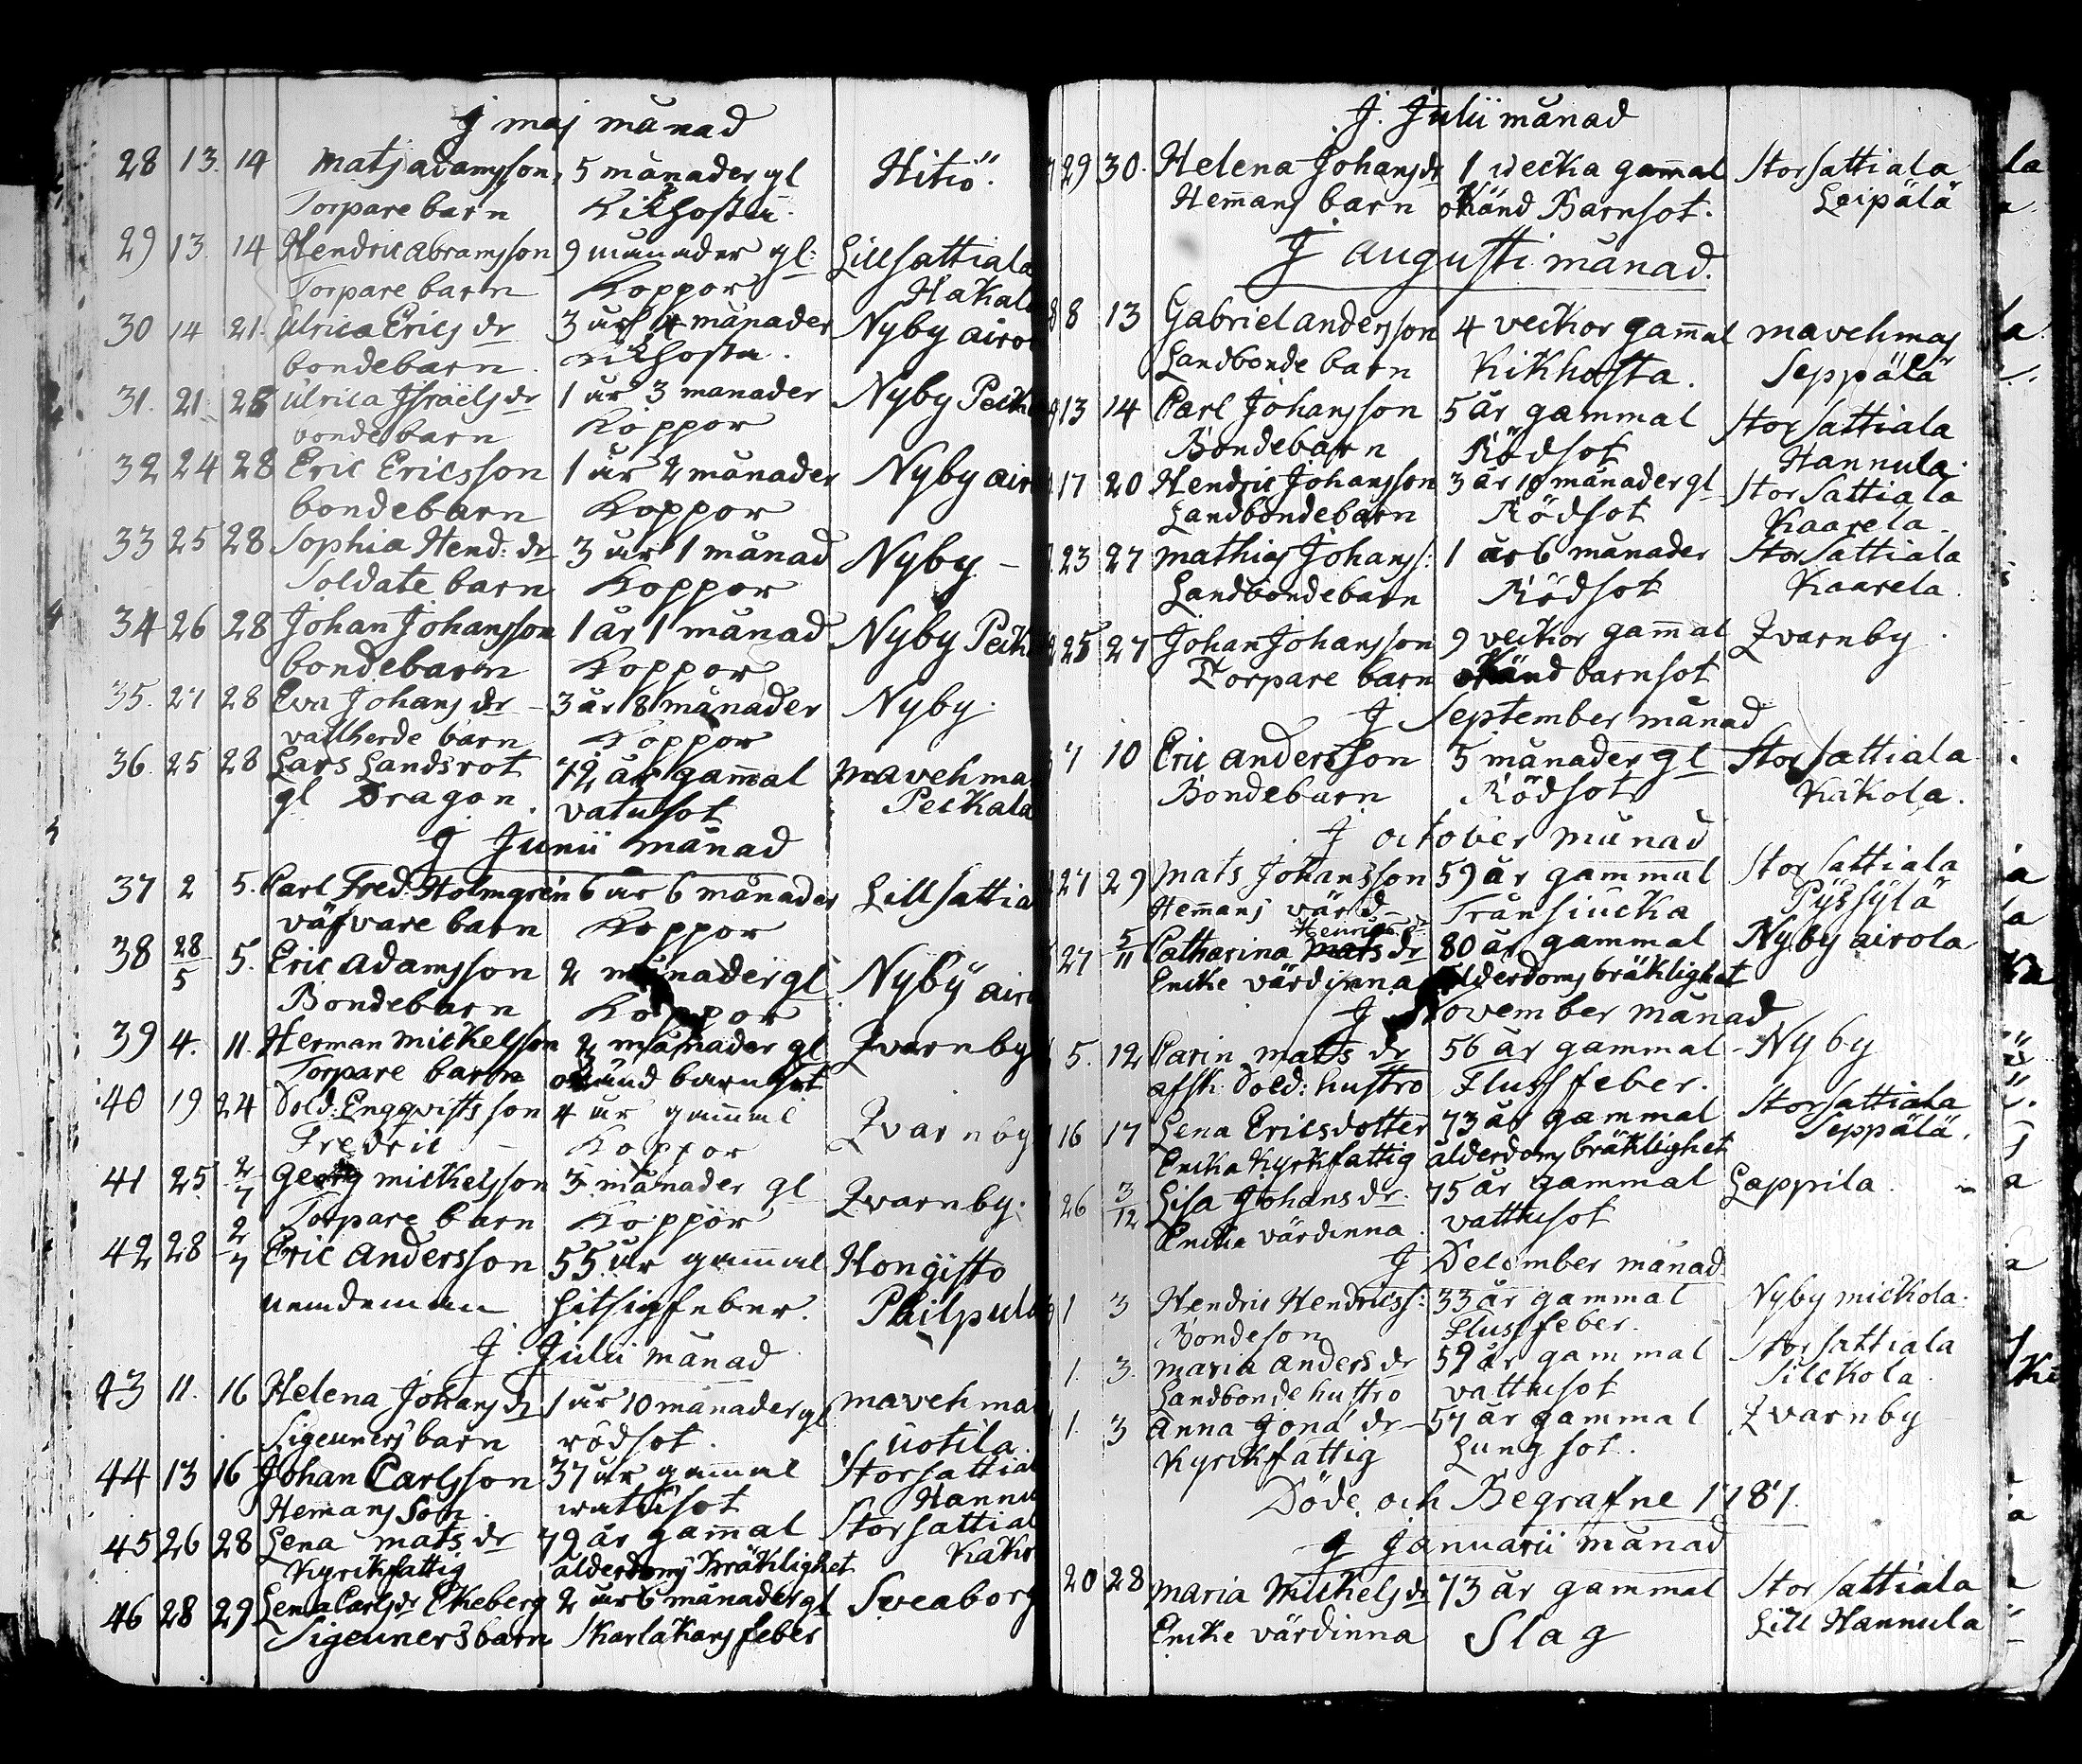 J maj månad
28 13. 14 Matj adamsson, 5 månader gl Hitiö.
Torpare barn Kikhosta.
29 13 14 Hendric abramsson 9 månader gl: Lillsattiala
Torpare barn Koppor Hakala
30 14 21. Ulrica Erics dr 3 år 4 månader Nyby airol
bondebarn. Kikhosta.
31. 21 28 Ulrica Israels dr 1 år 3 månader Nyby Peck
bondebarn Koppor
32 24 28 Eric Ericsson 1 år 2 månader Nyby air
bondebarn Koppor
33 25 28 Sophia Hend: dr 3 år 1 månad Nyby -
Soldate barn Koppor
34 26 28 Johan Johansson 1 år 1 månad Nyby Peck
bondebarn Koppor
35. 27 28 Eva Johans dr - 3 år 8 månader Nyby.
vallherde barn Koppor
36. 25 28 Lars Landsrot 72 år gammal Mavehma
gl Dragon. vatusot Peckala
J Junii månad
37 2 5. Carl Fred. Holmgrén 6 år 6 månader Lillsattia
väfvare barn Koppor
38 28/5 5. Eric adamsson 2 månader gl Nyby airo
Bondebarn Koppor
39 4. 11. Herman mickelsson 2 månader gl Qvarnby
Torpare barn okänd barnsot
40 19 24 Sold: Engqvists son 4 år gammal Qvarnby
Fredric - Koppor
41 25 2/7 Georg mickelsson 3 månader gl Qvarnby.
Torpare barn Koppor
42 28 2/7 Eric Andersson 55 år gammal Hongisto
nemdeman hitsigfeber. Philpula
J Julii månad
43 11. 16 Helena Johans dr 1 år 10 månader gl mavehma
Sigeuners barn rödsot. uotila.
44 13 16 Johan Carlsson 37 år gammal Storsattial
Hemans Son. watusot Hannu
45 26 28 Lena mats dr 79 år gammal Storsattial
Kyrkfattig ålderdoms bräklighet Käkö
46 28 29 Lena Carls dr Ekeberg 2 år 6 månader gl Sveaborg
Sigeuners barn skarlakans feber
J. Julii månad
29 30. Helena Johans dr 1 wecka gammal Storsattiala
Hemans barn okänd Barnsot. Leipälä
J augusti månad.
8 13 Gabriel andersson 4 veckor gammal mavehmas
Landbonde barn Kikhosta. Seppälä
13 14 Carl Johansson 5 år gammal Storsattiala
Bondebarn Rödsot Hannula.
17 20 Hendric Johansson 3 år 10 månader gl Storsattiala
Landbondebarn Rödsot Kaarela.
23 27 mathias Johanss: 1 år 6 månader Storsattiala
Landbondebarn Rödsot Kaarela.
25 27 Johan Johansson 9 veckor gammal Qvarnby.
Torpare barn okänd barnsot
J September månad
7 10 Eric andersson 5 månader gl Storsattiala
Bondebarn Rödsot Käkola.
J october månad
27 29 mats Johansson 59 år gammal Storsattiala
Hemans värd - Trånsiucka Pyssylä
Henrics
27 5/11 Catharina mats dr 80 år gammal Nyby airola
Encke värdinna ålderdoms bräklighet
J November månad
5. 12 Carin mats dr 56 år gammal - Nyby
afsk: Sold: hustro Fluss feber.
16 17 Lena Ericsdotter 73 år gammal Storsattiala
Encka Kyrkfattig ålderdoms bräklighet Seppälä.
26 3/12 Lisa Johans dr. 75 år gammal Lappila.
Encka värdinna. vattusot
J December månad
1 3 Hendric Hendricss: 33 år gammal Nyby mickola.
Bondeson Flussfeber.
1. 3. maria anders dr 59 år gammal Storsattiala
Landbonde hustro vattusot Silckola.
1. 3 anna Jona dr - 57 år gammal Qvarnby
Kyrckfattig Lungsot.
Döde och Begrafne 1787.
J Januarii månad
20 28 maria Mickels dr 73 år gammal Storsattiala
Encke värdinna Slag Lill Hannula